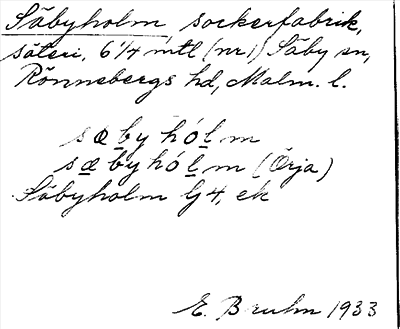 Säbyholm sockerfabrik,
säteri, 6 1/4 mtl (nr 1) Säby sn,
Rönnebergs hd, Malm. l.
sæbyhólm
sæbyhólm (Örja)
Säbyholm Gj 4, ek
E. Bruhn 1933